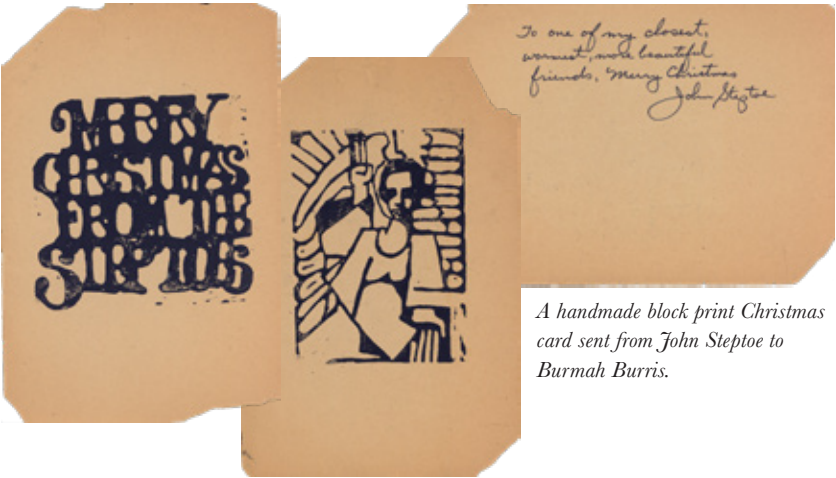 MERRY
CHRISTMAS
FROM THE
STEPTOES
To one of my closest,
warmest, more beautiful
friends, Merry Christmas
John Steptoe
A handmade block print Christmas
card sent from John Steptoe to
Burmah Burris.